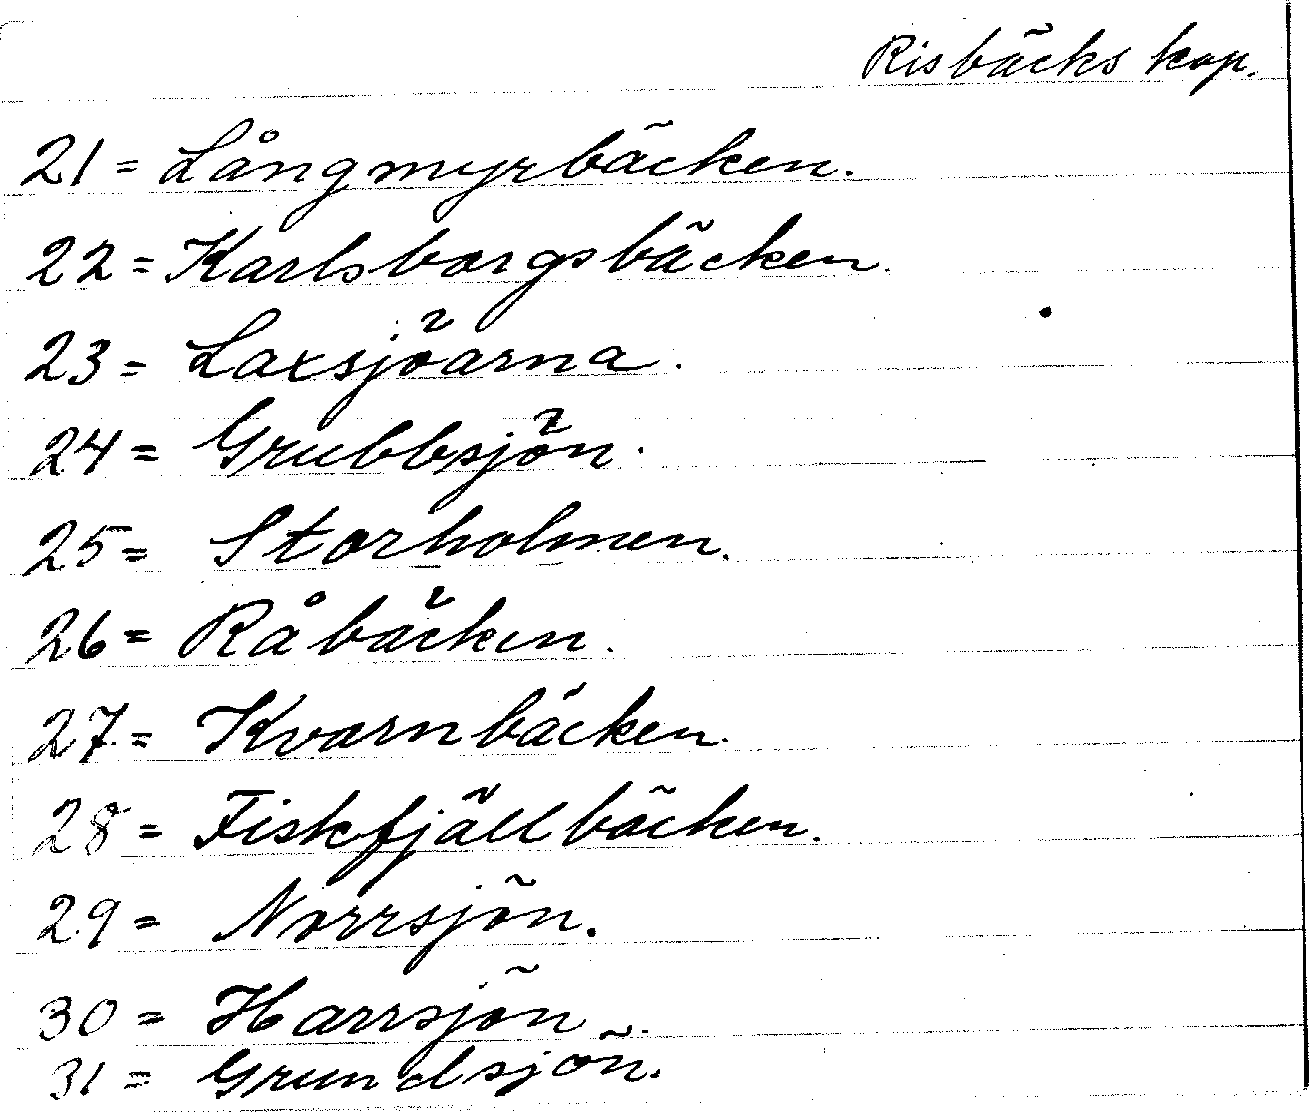 Risbäcks kap.
21 = Långmyrbäcken.
22 = Karlsborgsbäcken.
23 = Laxsjöarna.
24 = Grubbsjön.
25 = Storholmen.
26 = Råbäcken.
27 = Kvarnbäcken.
28 = Fiskfjällbäcken.
29 = Norrsjön.
30 = Harrsjön.
31 = Grundsjön.